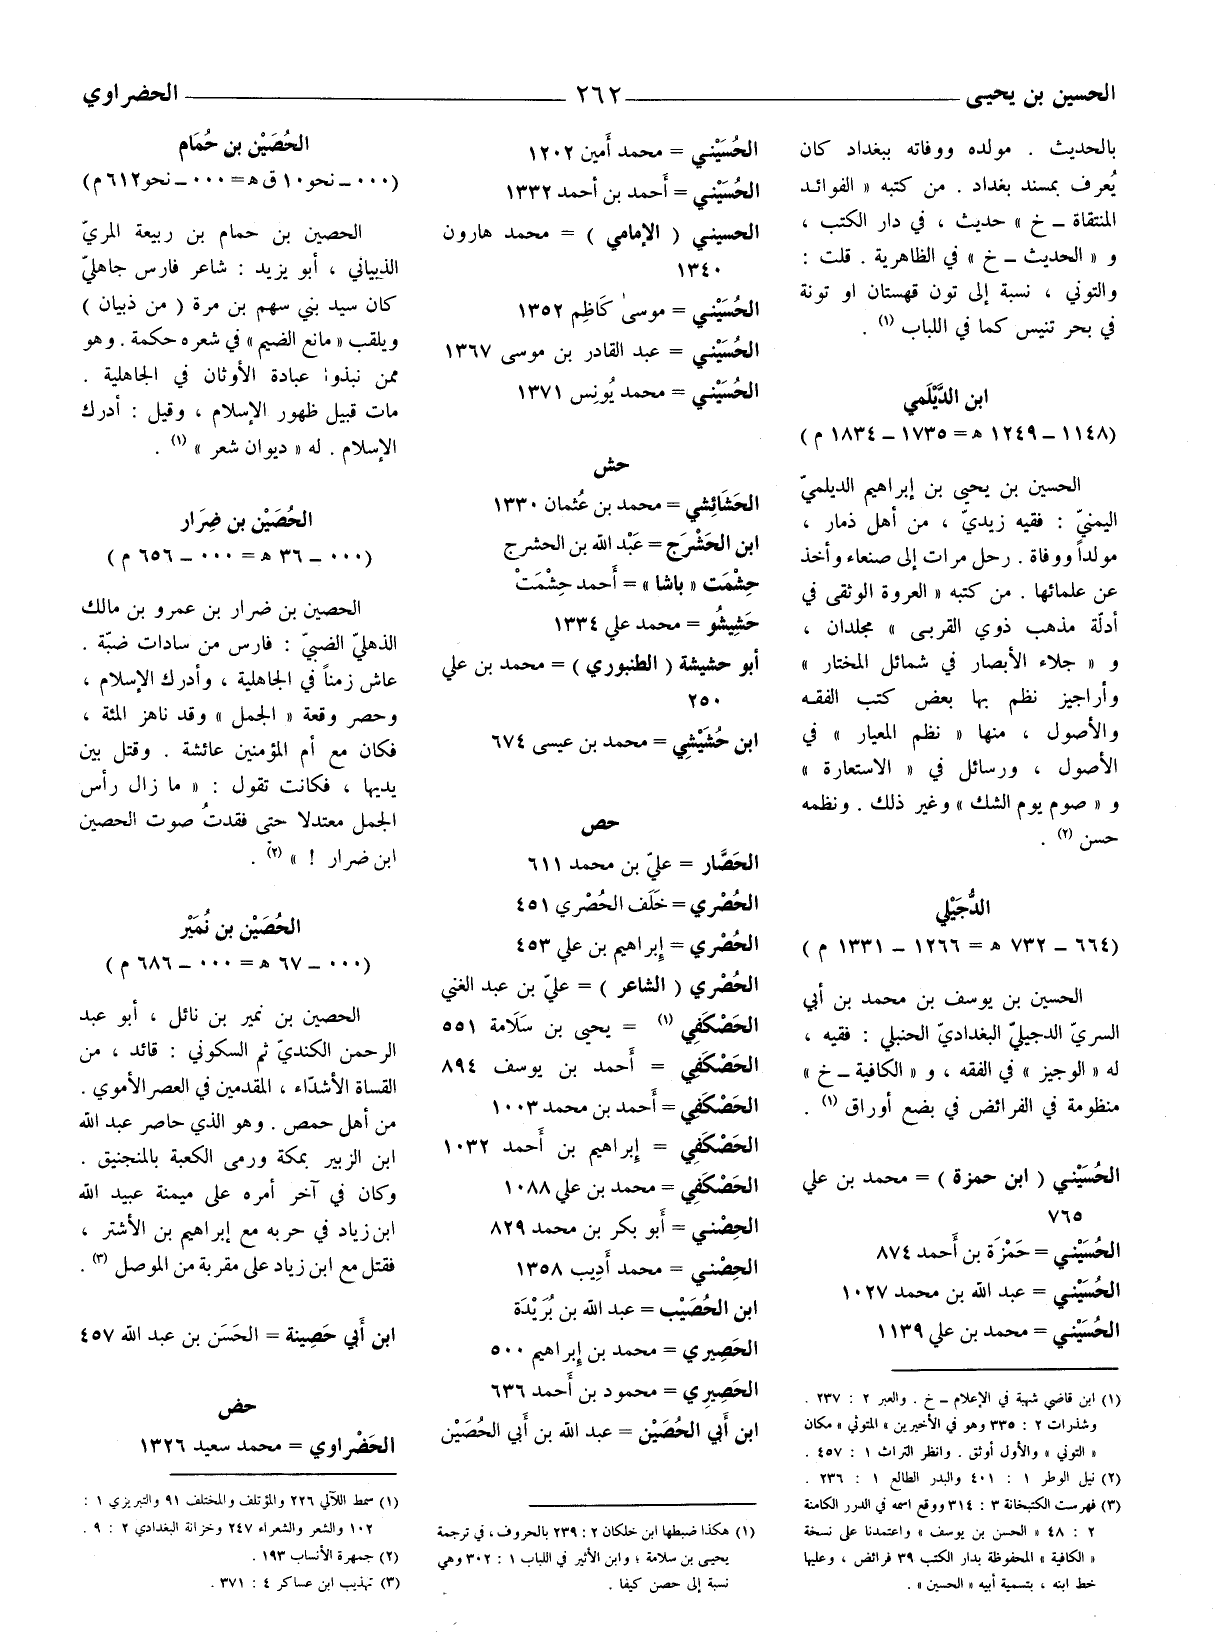 الحسين بن يحيى ٢٦٢ الحضراوي
بالحديث . مولده ووفاته ببغداد كان
يُعرف بمسند بغداد . من كتبه « الفوائد
المنتقاة ـ خ » حديث ، في دار الكتب ،
و « الحديث ـ خ » في الظاهرية . قلت :
والتوني ، نسبة إلى تون قهستان او تونة
في بحر تنيس كما في اللباب (١) .
ابن الدَّيْلَمي
(١١٤٨ ـ ١٢٤٩ هـ = ١٧٣٥ ـ ١٨٣٤ م )
الحسين بن يحيى بن إبراهيم الديلميّ
اليمنيّ : فقيه زيديّ ، من أهل ذمار ،
مولداً ووفاة . رحل مرات إلى صنعاء وأخذ
عن علمائها . من كتبه « العروة الوثقى في
أدلّة مذهب ذوي القربى » مجلدان ،
و « جلاء الأبصار في شمائل المختار »
وأراجيز نظم بها بعض كتب الفقه
والأصول ، منها « نظم المعيار » في
الأصول ، ورسائل في « الاستعارة »
و « صوم يوم الشك » وغير ذلك . ونظمه
حسن (٢) .
الدُّجَيْلي
(٦٦٤ ـ ٧٣٢ هـ = ١٢٦٦ ـ ١٣٣١ م )
الحسين بن يوسف بن محمد بن أبي
السريّ الدجيليّ البغداديّ الحنبلي : فقيه ،
له « الوجيز » في الفقه ، و « الكافية ـ خ »
منظومة في الفرائض في بضع أوراق (١) .
الحُسَيْني ( ابن حمزة ) = محمد بن علي
٧٦٥
الحُسَيْني = حَمْزَة بن أَحمد ٨٧٤
الحُسَيْني = عبد الله بن محمد ١٠٢٧
الحُسَيْني = محمد بن علي ١١٣٩
(١) ابن قاضي شهبة في الإعلام ـ خ . والعبر ٢ : ٢٣٧ .
وشذرات ٢ : ٣٣٥ وهو في الأخيرين « المتوثي » مكان
« التوني » والأول أوثق . وانظر التراث ١ : ٤٥٧ .
(٢) نيل الوطر ١ : ٤٠١ والبدر الطالع ١ : ٢٣٦ .
(٣) فهرست الكتبخانة ٣ : ٣١٤ ووقع اسمه في الدرر الكامنة
٢ : ٤٨ « الحسن بن يوسف » واعتمدنا على نسخة
« الكافية » المحفوظة بدار الكتب ٣٩ فرائض ، وعليها
خط ابنه ، بتسمية أبيه « الحسين » .
الحُسَيْني = محمد أَمين ١٢٠٢
الحُسَيْني = أَحمد بن أحمد ١٣٣٢
الحسيني ( الإمامي ) = محمد هارون
١٣٤٠
الحُسَيْني = موسىٰ كَاظِم ١٣٥٢
الحُسَيْني = عبد القادر بن موسى ١٣٦٧
الحُسَيْني = محمد يُونِس ١٣٧١
حش
الحَشَائِشي = محمد بن عُثمان ١٣٣٠
ابن الحَشْرَج = عَبْد الله بن الحشرج
حِشْمَت « باشا » = أَحمد حِشْمَتْ
حَشِيشُو = محمد علي ١٣٣٤
أبو حشيشة ( الطنبوري ) = محمد بن علي
٢٥٠
ابن حُشَيْشِي = محمد بن عيسى ٦٧٤
حص
الحَصَّار = عليّ بن محمد ٦١١
الحُصْري = خَلَف الحُصْري ٤٥١
الحُصْري = إبراهيم بن علي ٤٥٣
الحُصْري ( الشاعر ) = عليّ بن عبد الغني
الحَصْكَفِي (١) = يحيى بن سَلَامة ٥٥١
الحَصْكَفِي = أَحمد بن يوسف ٨٩٤
الحَصْكَفِي = أَحمد بن محمد ١٠٠٣
الحَصْكَفِي = إبراهيم بن أَحمد ١٠٣٢
الحَصْكَفِي = محمد بن علي ١٠٨٨
الحِصْني = أَبو بكر بن محمد ٨٢٩
الحِصْني = محمد أَدِيب ١٣٥٨
ابن الحُصَيْب = عبد الله بن بُرَيْدَة
الحَصِيري = محمد بن إبراهيم ٥٠٠
الحَصِيرِي = محمود بن أَحمد ٦٣٦
ابن أَبي الحُصَيْن = عبد الله بن أَبي الحُصَيْن
(١) هكذا ضبطها ابن خلكان ٢ : ٢٣٩ بالحروف، في ترجمة
يحيى بن سلامة ؛ وابن الأثير في اللباب ١ : ٣٠٢ وهي
نسبة إلى حصن كيفا .
الحُصَيْن بن حُمَام
(٠٠٠ ـ نحو ١٠ ق هـ = ٠٠٠ ـ نحو ٦١٢ م)
الحصين بن حمام بن ربيعة المريّ
الذبياني ، أبو يزيد : شاعر فارس جاهليّ
كان سيد بني سهم بن مرة ( من ذبيان )
ويلقب « مانع الضيم » في شعره حكمة . وهو
ممن نبذوا عبادة الأوثان في الجاهلية .
مات قبيل ظهور الإسلام ، وقيل : أدرك
الإسلام . له « ديوان شعر » (١) .
الحُصَيْن بن ضِرَار
(٠٠٠ ـ ٣٦ هـ = ٠٠٠ ـ ٦٥٦ م )
الحصين بن ضرار بن عمرو بن مالك
الذهليّ الضبيّ : فارس من سادات ضبّة .
عاش زمناً في الجاهلية ، وأدرك الإسلام ،
وحصر وقعة « الجمل » وقد ناهز المئة ،
فكان مع أم المؤمنين عائشة . وقتل بين
يديها ، فكانت تقول : « ما زال رأس
الجمل معتدلا حتى فقدتُ صوت الحصين
ابن ضرار ! » (٢) .
الحُصَيْن بن نُمَيْر
(٠٠٠ ـ ٦٧ هـ = ٠٠٠ ـ ٦٨٦ م )
الحصين بن نمير بن نائل ، أبو عبد
الرحمن الكنديّ ثم السكوني : قائد ، من
القساة الأشدّاء ، المقدمين في العصر الأموي .
من أهل حمص . وهو الذي حاصر عبد الله
ابن الزبير بمكة ورمى الكعبة بالمنجنيق .
وكان في آخر أمره على ميمنة عبيد الله
ابن زياد في حربه مع إبراهيم بن الأشتر ،
فقتل مع ابن زياد على مقربة من الموصل (٣) .
ابن أَبي حَصِينة = الحَسَن بن عبد الله ٤٥٧
حض
الحَضْراوي = محمد سعيد ١٣٢٦
(١) سمط اللآلي ٢٢٦ والمؤتلف والمختلف ٩١ والتبريزي ١ :
١٠٢ والشعر والشعراء ٢٤٧ وخزانة البغدادي ٢ : ٩ .
(٢) جمهرة الأنساب ١٩٣ .
(٣) تهذيب ابن عساكر ٤ : ٣٧١ .